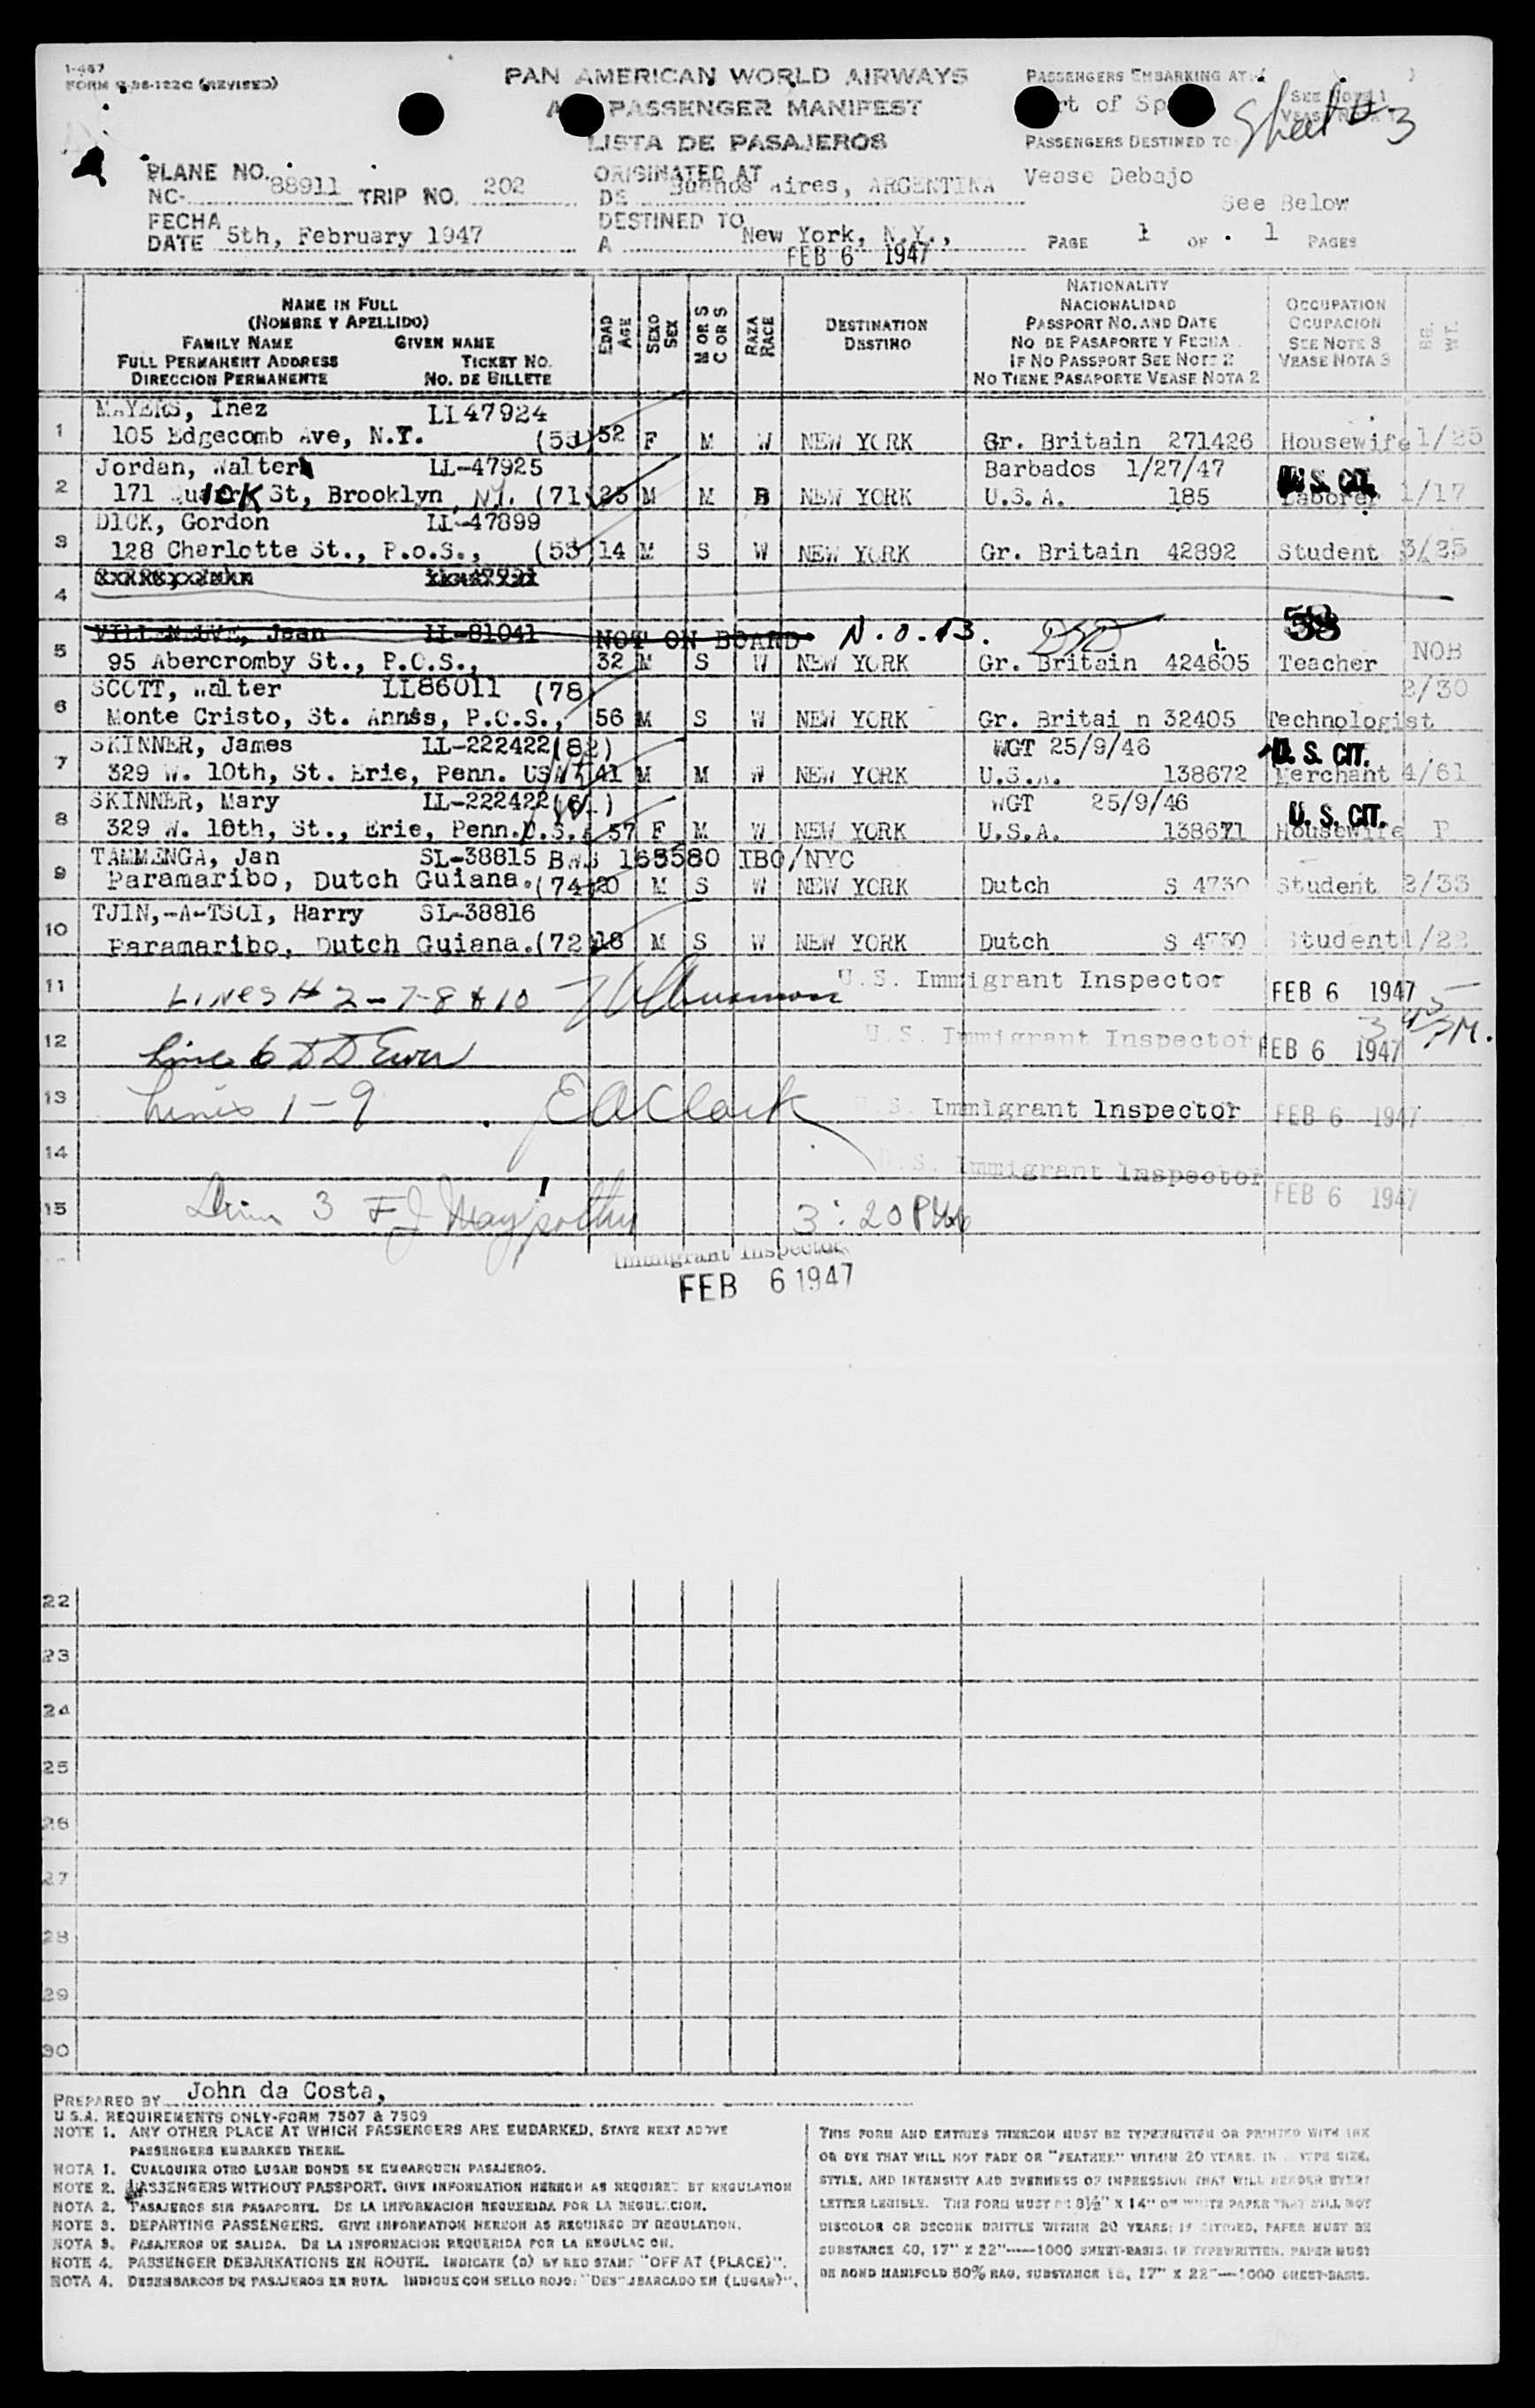 I-467
FORM (REVISED)
PAN AMERICAN WORLD AIRWAYS
PASSENGER MANIFEST
LISTA DE PASAJEROS
PASSENGERS EMBARKING AT
rt of Sp
Sheet # 3
PASSENGERS DESTINED TO
Vease Debajo
See Below
PLANE NO. NC- 88911 TRIP NO. 202
ORIGINATED AT DE Buenos Aires, ARGENTINA
FECHA DATE 5th, February 1947
DESTINED TO A New York, N.Y.,
FEB 6 1947
PAGE 1 OF 1 PAGES
NAME IN FULL
(NOMBRE Y APELLIDO)
FAMILY NAME GIVEN NAME
FULL PERMANENT ADDRESS TICKET NO.
DIRECCION PERMANENTE NO. DE BILLETE
EDAD AGE
SEXO SEX
M OR S C OR S
RAZA RACE
DESTINATION
DESTINO
NATIONALITY
NACIONALIDAD
PASSPORT NO. AND DATE
NO DE PASAPORTE Y FECHA
IF NO PASSPORT SEE NOTE 2
NO TIENE PASAPORTE VEASE NOTA 2
OCCUPATION
OCUPACION
SEE NOTE 3
VEASE NOTA 3
WT.
1 MAYERS, Inez LL47924
105 Edgecomb Ave, N.Y. (53) 52 F M W NEW YORK Gr. Britain 271426 Housewife 1/25
2 Jordan, Walter LL-47925 Barbados 1/27/47 U.S. CIT.
171 St, Brooklyn N.Y. (71) 25 M M B NEW YORK U.S.A. 185 Laborer 1/17
3 DICK, Gordon LL-47899
128 Charlotte St., P.o.S., (55) 14 M S W NEW YORK Gr. Britain 42892 Student 3/35
4
5 VILLENEUVE, Jean LL-81041 NOT ON BOARD N.O.B. 58
95 Abercromby St., P.O.S., 32 M S W NEW YORK Gr. Britain 424605 Teacher NOB
6 SCOTT, Walter LL86011 (78) 2/30
Monte Cristo, St. Annss, P.O.S., 56 M S W NEW YORK Gr. Britai n 32405 Technologist
7 SKINNER, James LL-222422 (82) WGT 25/9/46 U.S. CIT.
329 W. 10th, St. Erie, Penn. USA 41 M M W NEW YORK U.S.A. 138672 Merchant 4/61
8 SKINNER, Mary LL-222422 (61) WGT 25/9/46 U.S. CIT.
329 W. 10th, St., Erie, Penn. U.S.A 37 F M W NEW YORK U.S.A. 138671 Housewife P
9 TAMMENGA, Jan SL-38815 IBO/NYC
Paramaribo, Dutch Guiana. (74) 20 M S W NEW YORK Dutch S 4730 Student 2/33
10 TJIN,-A-TSOI, Harry SL-38816
Paramaribo, Dutch Guiana. (72) 18 M S W NEW YORK Dutch S 4730 Student 1/22
11 Lines # 2-7-8 & 10 U.S. Immigrant Inspector FEB 6 1947
12 Line 6 U.S. Immigrant Inspector FEB 6 1947
13 Lines 1-9 E A Clark U.S. Immigrant Inspector FEB 6 1947
14 U.S. Immigrant Inspector FEB 6 1947
15 3 3:20 PM
Immigrant Inspector
FEB 6 1947
22
23
24
25
26
27
28
29
30
PREPARED BY John da Costa,
U.S.A. REQUIREMENTS ONLY-FORM 7507 & 7509
NOTE 1. ANY OTHER PLACE AT WHICH PASSENGERS ARE EMBARKED, STATE NEXT ABOVE
PASSENGERS EMBARKED THERE.
NOTA 1. CUALQUIER OTRO LUGAR DONDE SE EMBARQUEN PASAJEROS.
NOTE 2. PASSENGERS WITHOUT PASSPORT. GIVE INFORMATION HEREON AS REQUIRED BY REGULATION
NOTA 2. PASAJEROS SIN PASAPORTE. DE LA INFORMACION REQUERIDA POR LA REGULACION.
NOTE 3. DEPARTING PASSENGERS. GIVE INFORMATION HEREON AS REQUIRED BY REGULATION.
NOTA 3. PASAJEROS DE SALIDA. DE LA INFORMACION REQUERIDA POR LA REGULACION.
NOTE 4. PASSENGER DEBARKATIONS EN ROUTE. INDICATE (D) BY RED STAMP "OFF AT (PLACE)".
NOTA 4. DESEMBARCOS DE PASAJEROS EN RUTA. INDIQUE CON SELLO ROJO: "DESEMBARCADO EN (LUGAR)".
THIS FORM AND ENTRIES THEREON MUST BE TYPEWRITTEN OR PRINTED WITH INK
OR DYE THAT WILL NOT FADE OR "FEATHER" WITHIN 20 YEARS. IN TYPE SIZE,
STYLE, AND INTENSITY AND EVENNESS OF IMPRESSION THAT WILL RENDER EVERY
LETTER LEGIBLE. THE FORM MUST BE 8½" X 14" ON WHITE PAPER THAT WILL NOT
DISCOLOR OR BECOME BRITTLE WITHIN 20 YEARS; IF PAPER MUST BE
SUBSTANCE 40, 17" X 22"—1000 SHEET-BASIS. IF TYPEWRITTEN, PAPER MUST
BE BOND MANIFOLD 50% RAG, SUBSTANCE 16, 17" X 22"—1000 SHEET-BASIS.